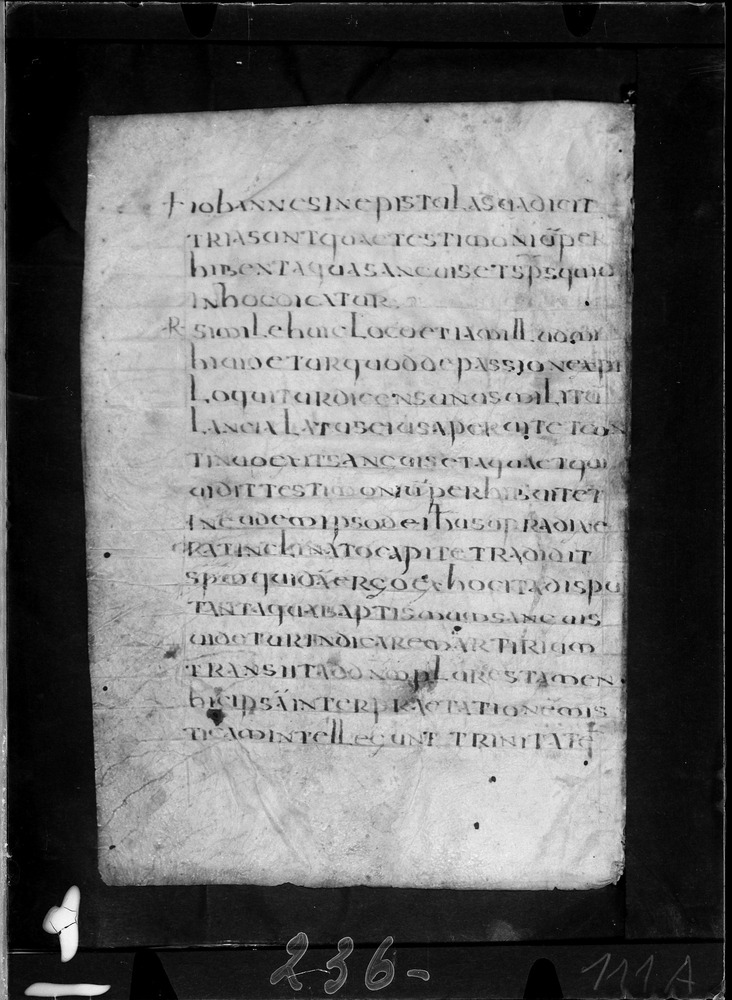 + iohannes in epistula sua dicit
tria sunt quae testimoniū per
hibent aqua sanguis et sps quid
in hoc dicatur.
R simile huic loco etiam illud mi
hi uidetur quod de passione xpi
loquitur dicens unus militū
lancia latus eius aperuit et con
tinuo exiit sanguis et aqua et qui
uidit testimoniū perhibuit et
in eudem ipso de ihu supra dixe
rat inclinato capite tradidit
spm quidā ergo ex hoc ita dispu
tant aqua baptismum sanguis
uidetur indicare martirium
transiit ad dnm plures tamen
hic ipsā interpraetationē mis
ticam intellegunt trinitatē
236-
111A